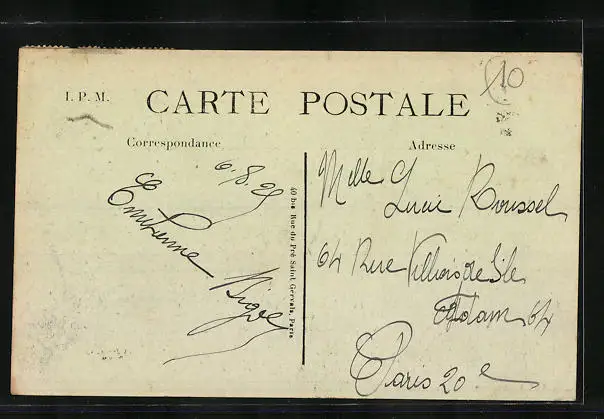 10
I. P. M.
CARTE POSTALE
Correspondance
Adresse
6.8.25
Etiennne
40 bis Rue du Pré Saint Gervais, Paris
Melle
Lucie Roussel
64 Rue Villiers de l'Ile
Adam 64
Paris 20e